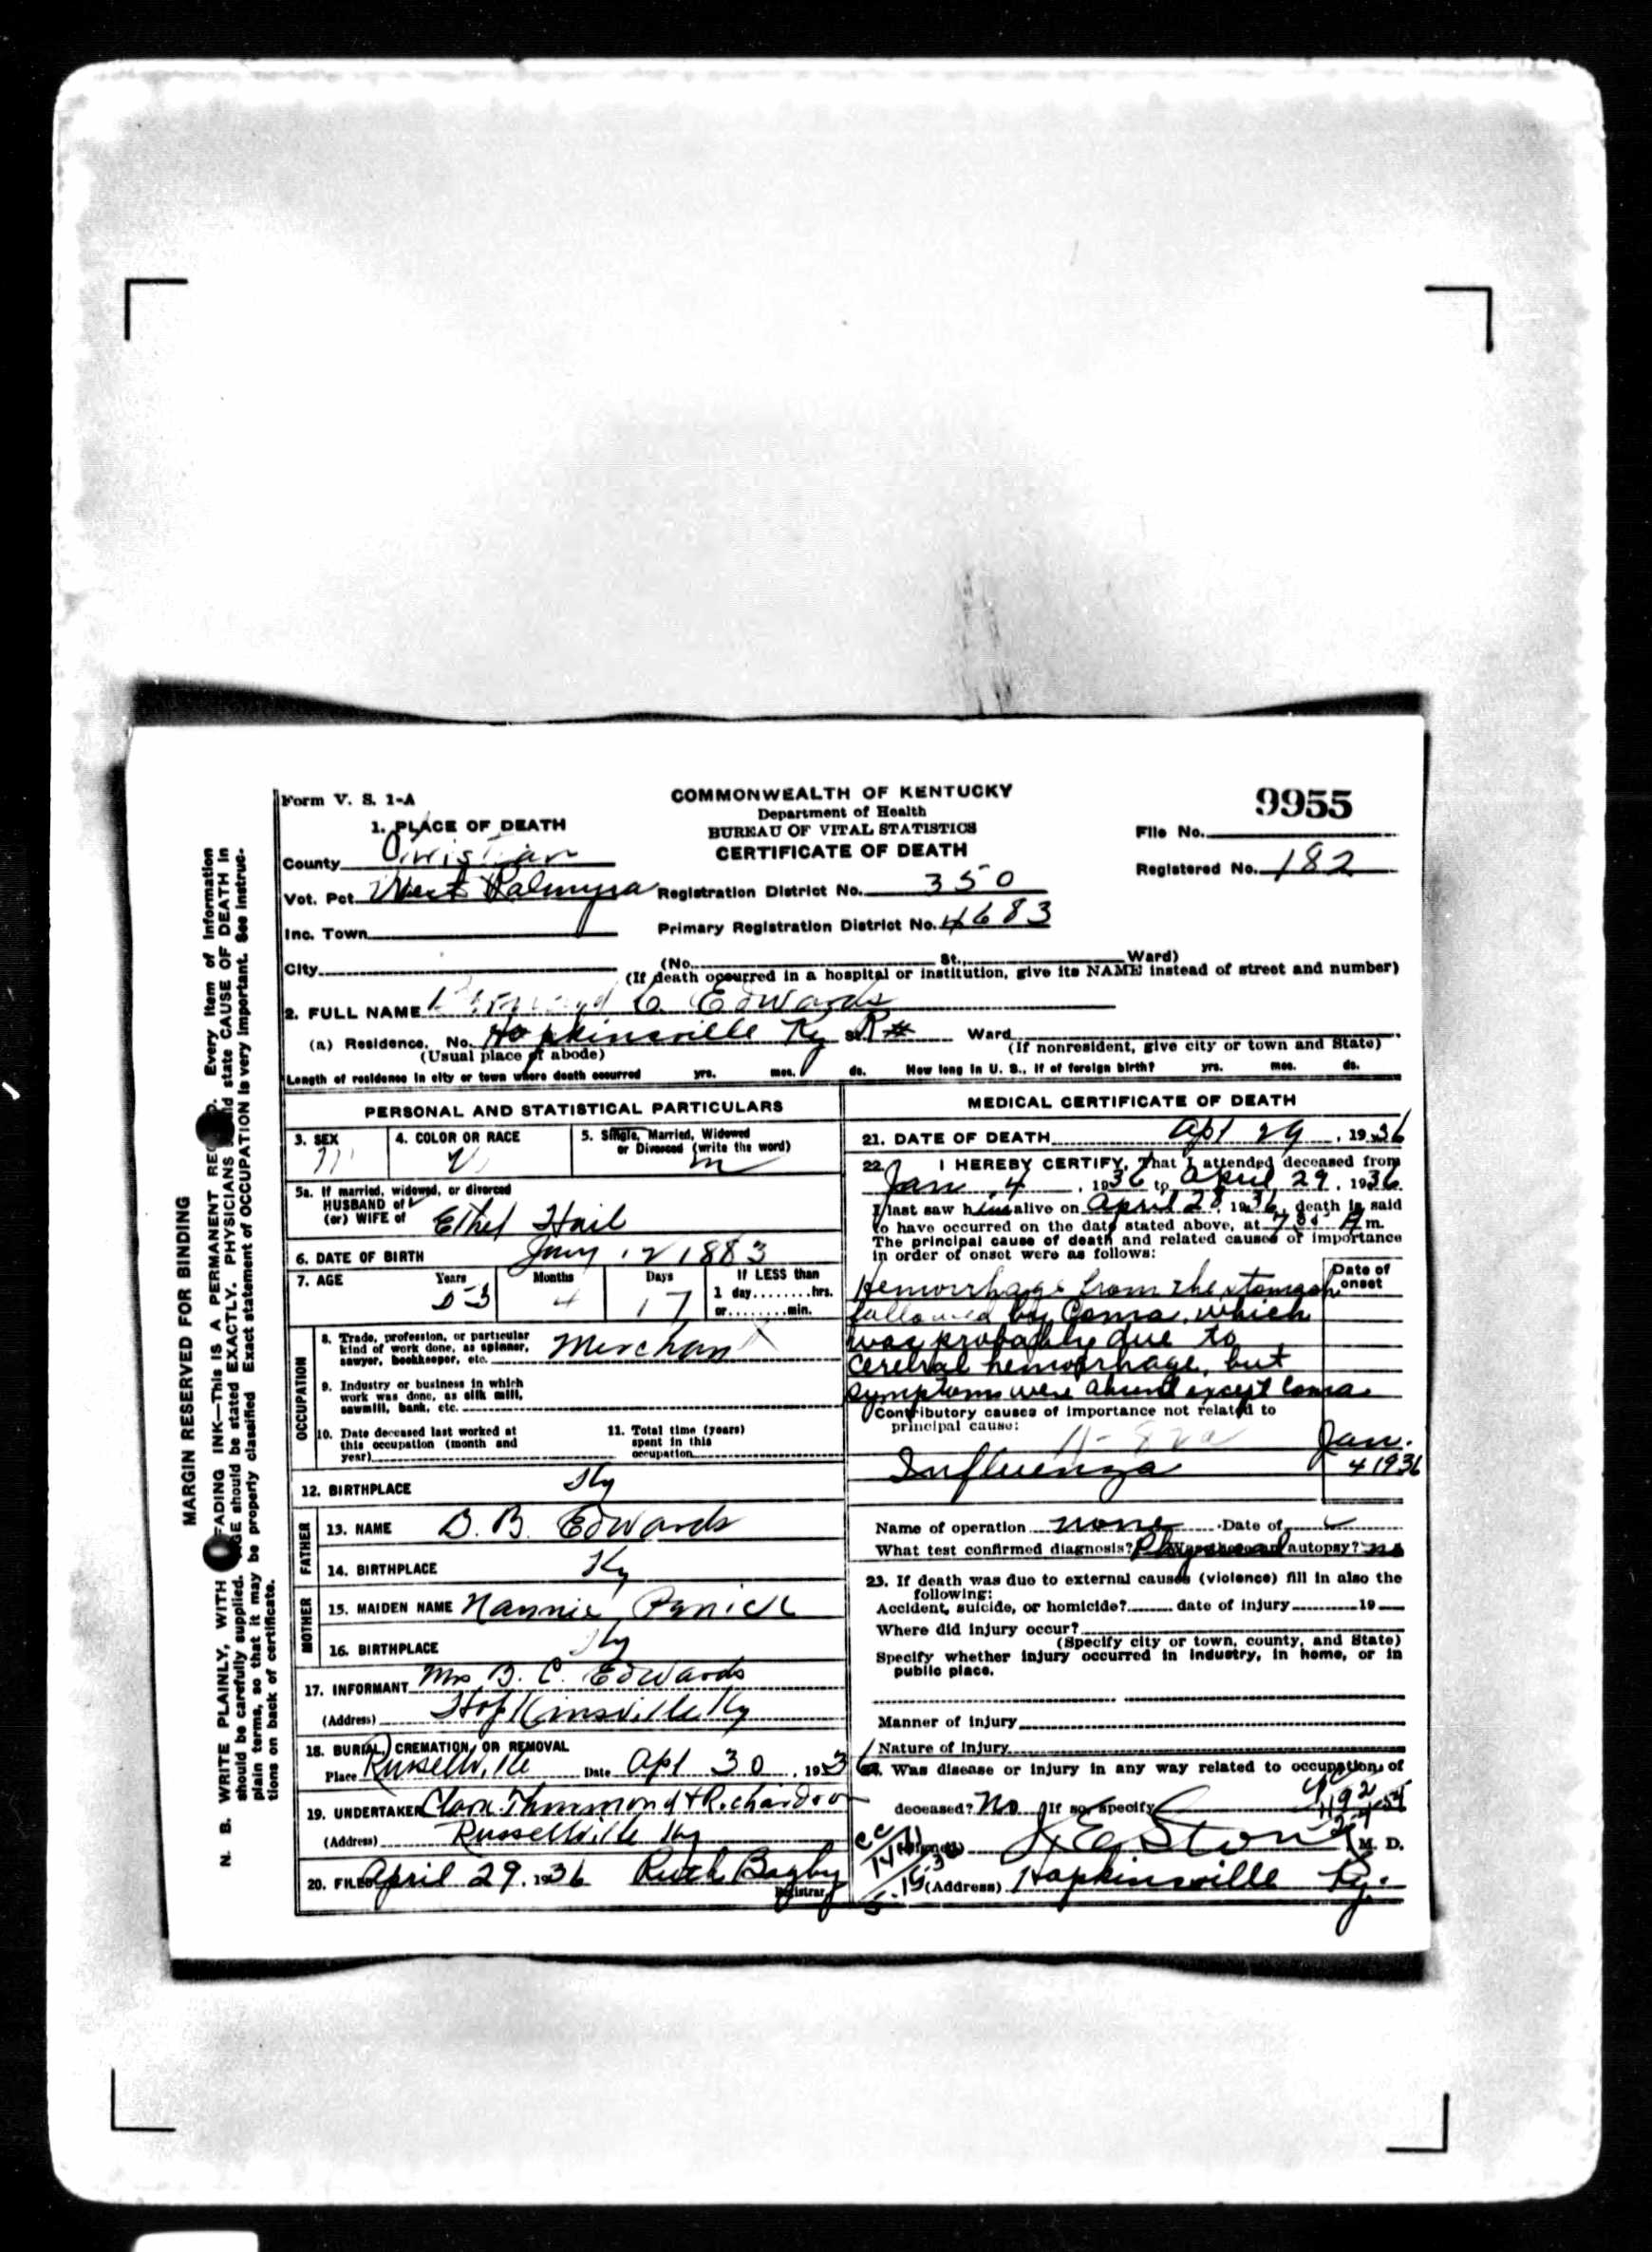 Form V. S. 1-A
COMMONWEALTH OF KENTUCKY
Department of Health
BUREAU OF VITAL STATISTICS
CERTIFICATE OF DEATH
9955
File No.
Registered No. 182
1. PLACE OF DEATH
County Christian
Vot. Pct. West Palmyra Registration District No. 350
Inc. Town Primary Registration District No. 4683
City (No. St., Ward)
(If death occurred in a hospital or institution, give its NAME instead of street and number)
2. FULL NAME C. Edwards
(a) Residence. No. Hopkinsville Ky St. R# Ward
(Usual place of abode) (If nonresident, give city or town and State)
Length of residence in city or town where death occurred yrs. mos. ds. How long in U. S., if of foreign birth? yrs. mos. ds.
PERSONAL AND STATISTICAL PARTICULARS
3. SEX 4. COLOR OR RACE 5. Single, Married, Widowed
or Divorced (write the word)
M W m
5a. If married, widowed, or divorced
HUSBAND of
(or) WIFE of Ethel Hail
6. DATE OF BIRTH Jany 12 1883
7. AGE Years Months Days If LESS than
53 4 17 1 day........hrs.
or........min.
OCCUPATION
8. Trade, profession, or particular
kind of work done, as spinner,
sawyer, bookkeeper, etc. Merchant
9. Industry or business in which
work was done, as silk mill,
sawmill, bank, etc.
10. Date deceased last worked at
this occupation (month and
year)
11. Total time (years)
spent in this
occupation
12. BIRTHPLACE Ky
FATHER
13. NAME B. B. Edwards
14. BIRTHPLACE Ky
MOTHER
15. MAIDEN NAME Nannie Penick
16. BIRTHPLACE Ky
17. INFORMANT Mrs B. C. Edwards
(Address) Hopkinsville Ky
18. BURIAL, CREMATION, OR REMOVAL
Place Russellville Date Apl 30, 1936
19. UNDERTAKER Clara Thmmond & Richardson
(Address) Russellville Ky
20. FILED April 29, 1936 Ruth Bagby
Registrar
MEDICAL CERTIFICATE OF DEATH
21. DATE OF DEATH Apl 29, 1936
22. I HEREBY CERTIFY, That I attended deceased from
Jan 4, 1936 to April 29, 1936
I last saw him alive on April 28, 1936, death is said
to have occurred on the date stated above, at 7 A m.
The principal cause of death and related causes of importance
in order of onset were as follows:
Date of
onset
Hemorrhage from the stomach
followed by Coma, which
was probably due to
cerebral hemorrhage, but
symptoms were absent except Coma
Contributory causes of importance not related to
principal cause:
Influenza Jan.
4 1936
Name of operation none Date of
What test confirmed diagnosis? Physical Was there an autopsy? no
23. If death was due to external causes (violence) fill in also the
following:
Accident, suicide, or homicide? date of injury 19
Where did injury occur?
(Specify city or town, county, and State)
Specify whether injury occurred in industry, in home, or in
public place.
Manner of injury
Nature of injury
24. Was disease or injury in any way related to occupation of
deceased? No If so, specify
(Signed) J. E. Stone M. D.
(Address) Hopkinsville Ky.
MARGIN RESERVED FOR BINDING
N. B. WRITE PLAINLY, WITH UNFADING INK—This IS A PERMANENT RECORD. Every item of information
should be carefully supplied. AGE should be stated EXACTLY. PHYSICIANS should state CAUSE OF DEATH in
plain terms, so that it may be properly classified. Exact statement of OCCUPATION is very important. See instruc-
tions on back of certificate.